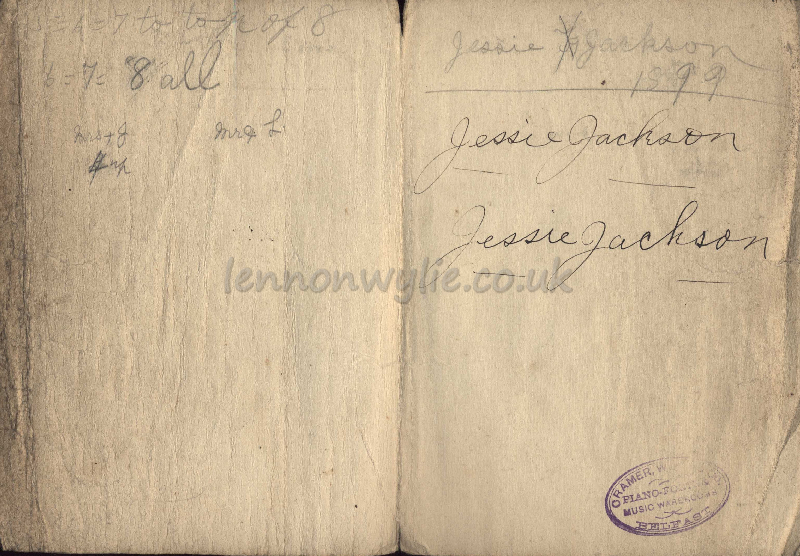 = 6 = 7 to top of 8
6 = 7 = "8" all
Mrs & J
Mr & L
Jessie Jackson
1899
Jessie Jackson
Jessie Jackson
lennonwylie.co.uk
CRAMER, W
PIANO-FORTE &
MUSIC WAREROOMS
BELFAST